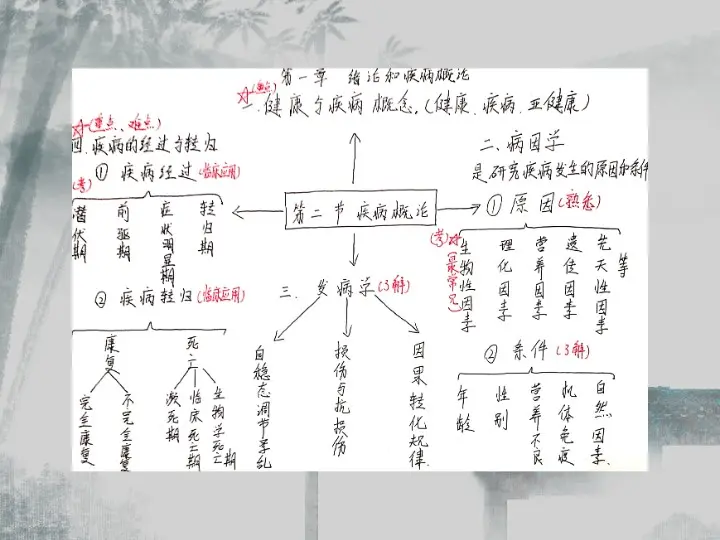 第一章 绪论和疾病概论
(重点)
一.健康与疾病概念.(健康.疾病.亚健康)
(重点、难点)
四.疾病的经过与转归
①疾病经过(临床应用)
(考)
潜伏期
前驱期
症状明显期
转归期
②疾病转归(临床应用)
康复
死亡
完全康复
不完全康复
濒死期
临床死亡期
生物学死亡期
第二节疾病概论
三.发病学(了解)
自稳态调节紊乱
损伤与抗损伤
因果转化规律.
二、病因学
是研究疾病发生的原因和条件
①原因(熟悉)
(考)
(最常见)
生物性因素
理化因素
营养因素
遗传因素
先天性因素
等
②条件(了解)
年龄
性别
营养不良
机体免疫
自然因素.